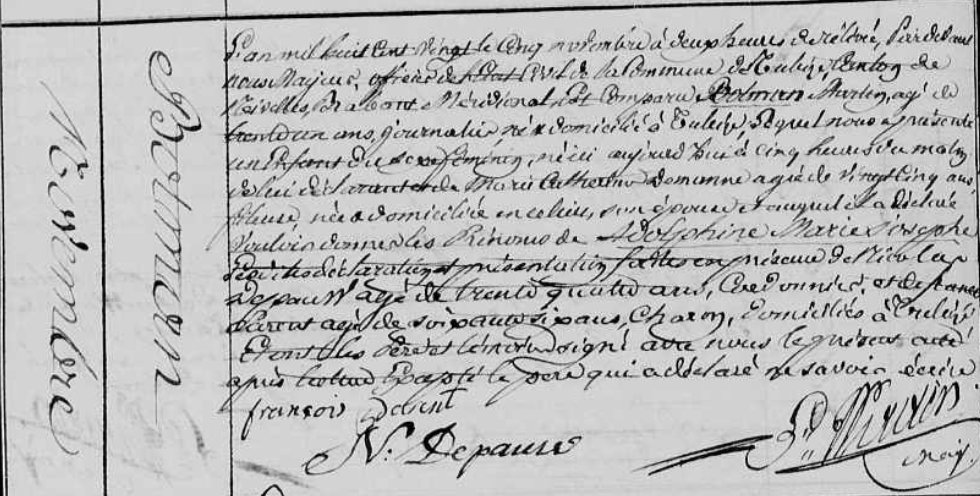 Novembre
Bolman
L'an mil huit cent vingt le Cinq novembre à deux heures de rélévée, Pardevant
nous Majeur, officier de l'Etat Civil de la Commune de Tubize, Canton de
Nivelles, Brabant Méridional, Est Comparu Bolman Martin, agé de
trente un ans, journalier né & domicilié à Tubize, Lequel nous a présenté
un Enfant du sexe féminin, né ici aujourd'hui à Cinq heures du matin
de lui déclarant et de Marie Catherine Demanne agée de vingt Cinq ans
fileuse, née & domiciliée en ce lieu, son épouse et auquel il a déclaré
vouloir donner les Prénoms de Adolphine Marie Joseph
Les dites déclaration et présentation faites en présence de Nicolas
Depauw agé de trente quatre ans, Cordonnier, et de francois
agé de soixante six ans, Charon, domiciliés à Tubize
Et ont les Père et témoins signé avec nous le présent acte
après lecture Excepté le père qui a déclaré ne savoir écrire
françois
N: Depauw
May.